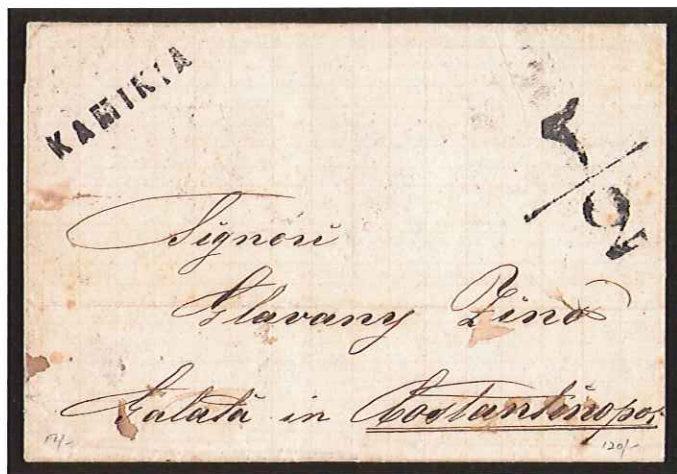 KAMIKIA
Signori
Glavany Zino
Galatà in Costantinopoi
120/-